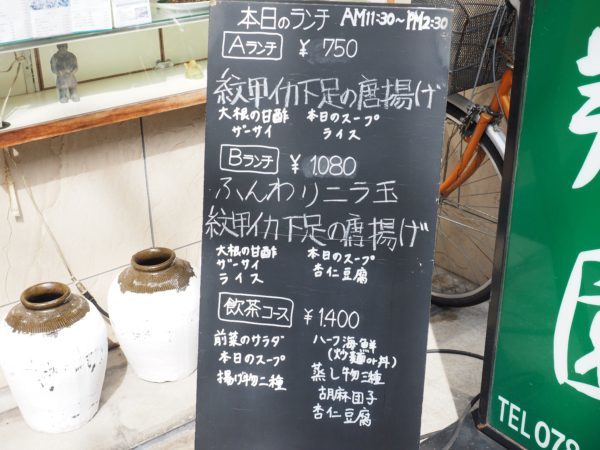 本日のランチ AM11:30〜PM2:30
Aランチ ¥750
紋甲イカ下足の唐揚げ
大根の甘酢 本日のスープ
ザーサイ ライス
Bランチ ¥1,080
ふんわりニラ玉
紋甲イカ下足の唐揚げ
大根の甘酢 本日のスープ
ザーサイ 杏仁豆腐
ライス
飲茶コース ¥1,400
前菜のサラダ
本日のスープ
揚げ物二種
ハーフ海鮮
(炒麺or丼)
蒸し物三種
胡麻団子
杏仁豆腐
園
TEL 078